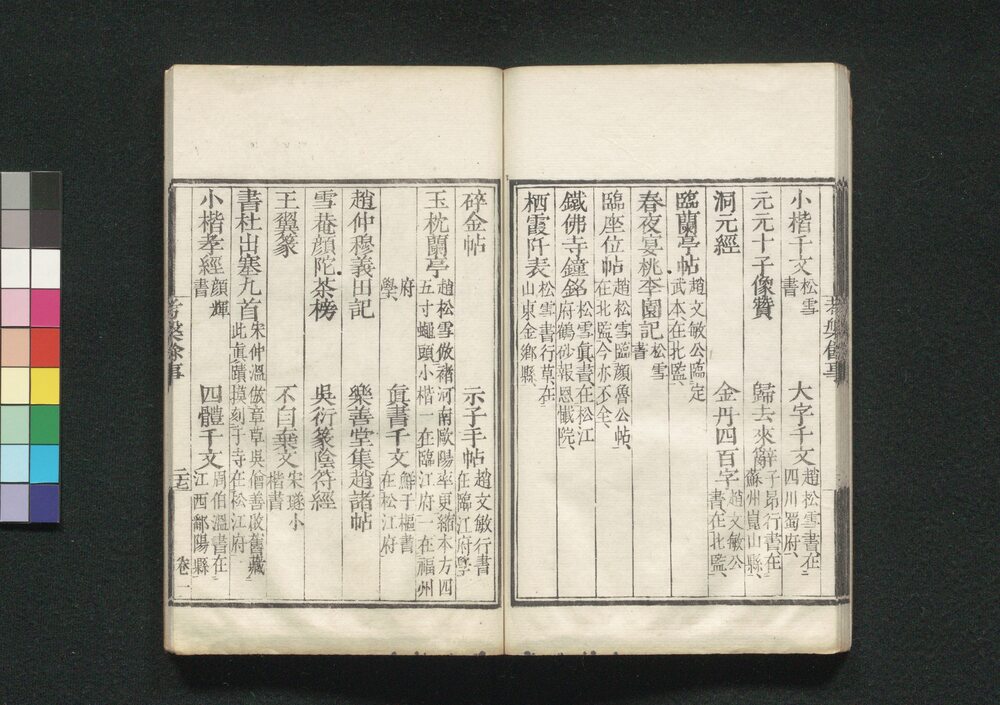 小楷千文松雪書　大字千文趙松雪書在四川蜀府
元元十子像贊　歸去來辭子昂行書在蘇州崑山縣
洞元經　金丹四百字趙文敏公書在北監
臨蘭亭帖趙文敏公臨定武本在北監
春夜宴桃李園記松雪書
臨座位帖趙松雪臨顔魯公帖在北監今亦不全
鐵佛寺鐘銘松雪眞書在松江府鶴砂報恩懺院
栖霞阡表松雪書行草在山東金鄉縣
碎金帖　示子手帖趙文敏行書在臨江府學
玉枕蘭亭趙松雪倣褚河南歐陽率更縮本方四五寸蠅頭小楷一在臨江府一在福州
府學　眞書千文鮮于樞書在松江府
趙仲穆義田記　樂善堂集趙諸帖
雪菴顔陀茶榜　吳衍篆陰符經
王翼篆　不自棄文宋璲小楷書
書杜出塞九首宋仲溫倣章草吳僧善啟舊藏此眞蹟摸刻于寺在松江府
小楷孝經顔輝書　四體千文周伯溫書在江西鄱陽縣
卷一